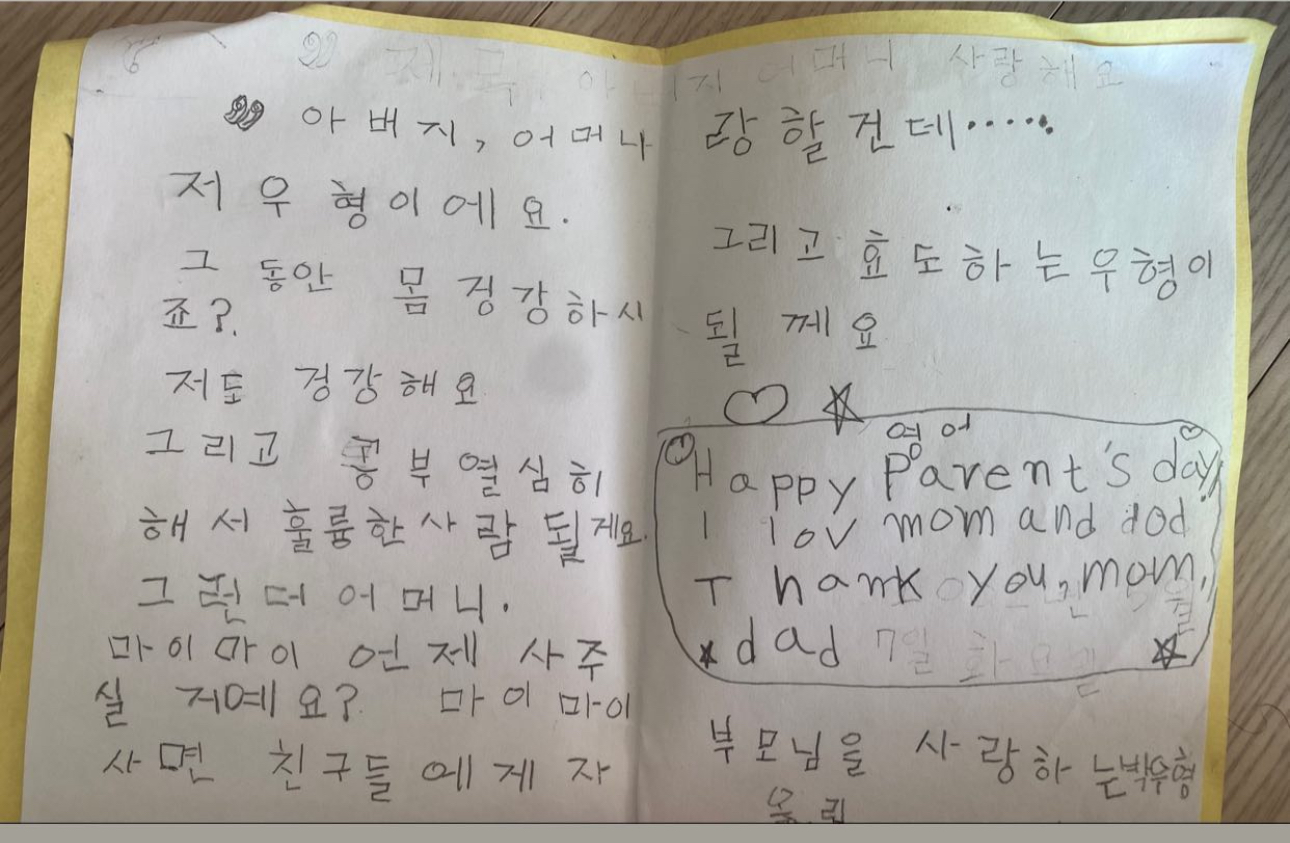 제목: 아버지 어머니 사랑해요
아버지, 어머나
저 우형이에요.
그 동안 몸 겅강하시
죠?
저도 겅강해요
그리고 공부 열심히
해서 훌륭한사람 될게요.
그런데 어머니.
마이마이 언제 사주
실 거예요? 마이마이
사면 친구들에게 자
랑할건데.....
그리고 효도하는우형이
될께요
영어
Happy Parent's day!
I lov mom and dod
Thank you, mom,
dad 7일 화요일
부모님을 사랑하는박우형
올림